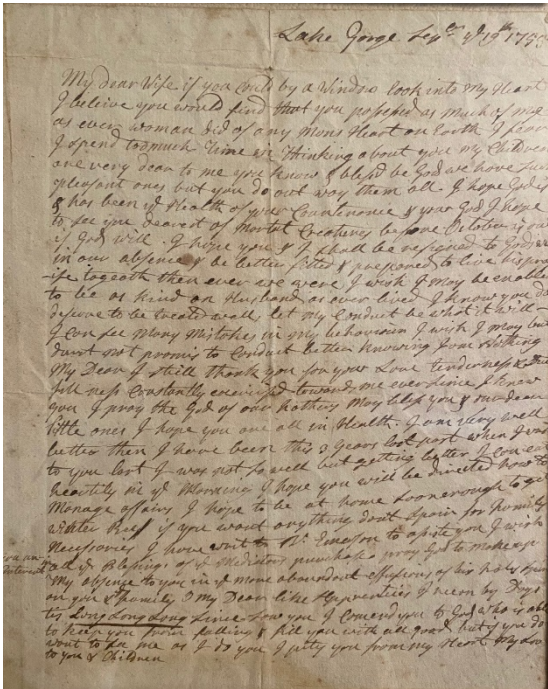 Lake Gorge Sepr ye 19th 175
My Dear Wife if you could by a Window look into My Heart
I beleive you would find that you possesed as much of me
as ever woman did of any Mans Heart on Earth I fear
I spend to much Time in Thinking about you my Children
are very dear to me you know & blesd be God we have
pleasant ones but you do out way them all. I hope God is
& has been ye Health of your Countenance & your God I hope
to see you dearest of Mortal Creatures before October is out
if God will. I hope you & I shall be resigned to Gods
in our absence & be better fitted & prepared to live
togeath then ever we were I wish I may be enable
to be as kind an Husband as ever lived I know you do
deserve to be treated well, let my Conduct be what it will
I can see Many Mistakes in my behaviour I wish I may but
dare not promis to Conduct better knowing I am Nothing
My Dear I still thank you for your Love tenderness &
fulness Constantly exercised toward me ever since I know
you I pray the God of our Fathers May bless you & our dear
little ones I hope you are all in Health. I am very well
better then I have been this 3 years last past when I wrote
to you last I was not so well but getting better I
heartily in ye Morning I hope you will be directed how to
Manage affairs I hope to be at home soon enough to get
winter Beef if you want anything dont spair for family
Necessaries I have writ to Mr. Emerson to assist you I wish
all ye Blesings of ye Mediators purchase & pray God to make up
My absence to you in ye more abundant effusions of his holy Spirit
on you & family O My Dear like Apprentices I mean by Days
tis Long Long Long since I saw you I comend you to God who is able
to keep you from falling & fill you with all good but if you do
want to see me as I do you I pitty you from my Heart My Love
to you & Children